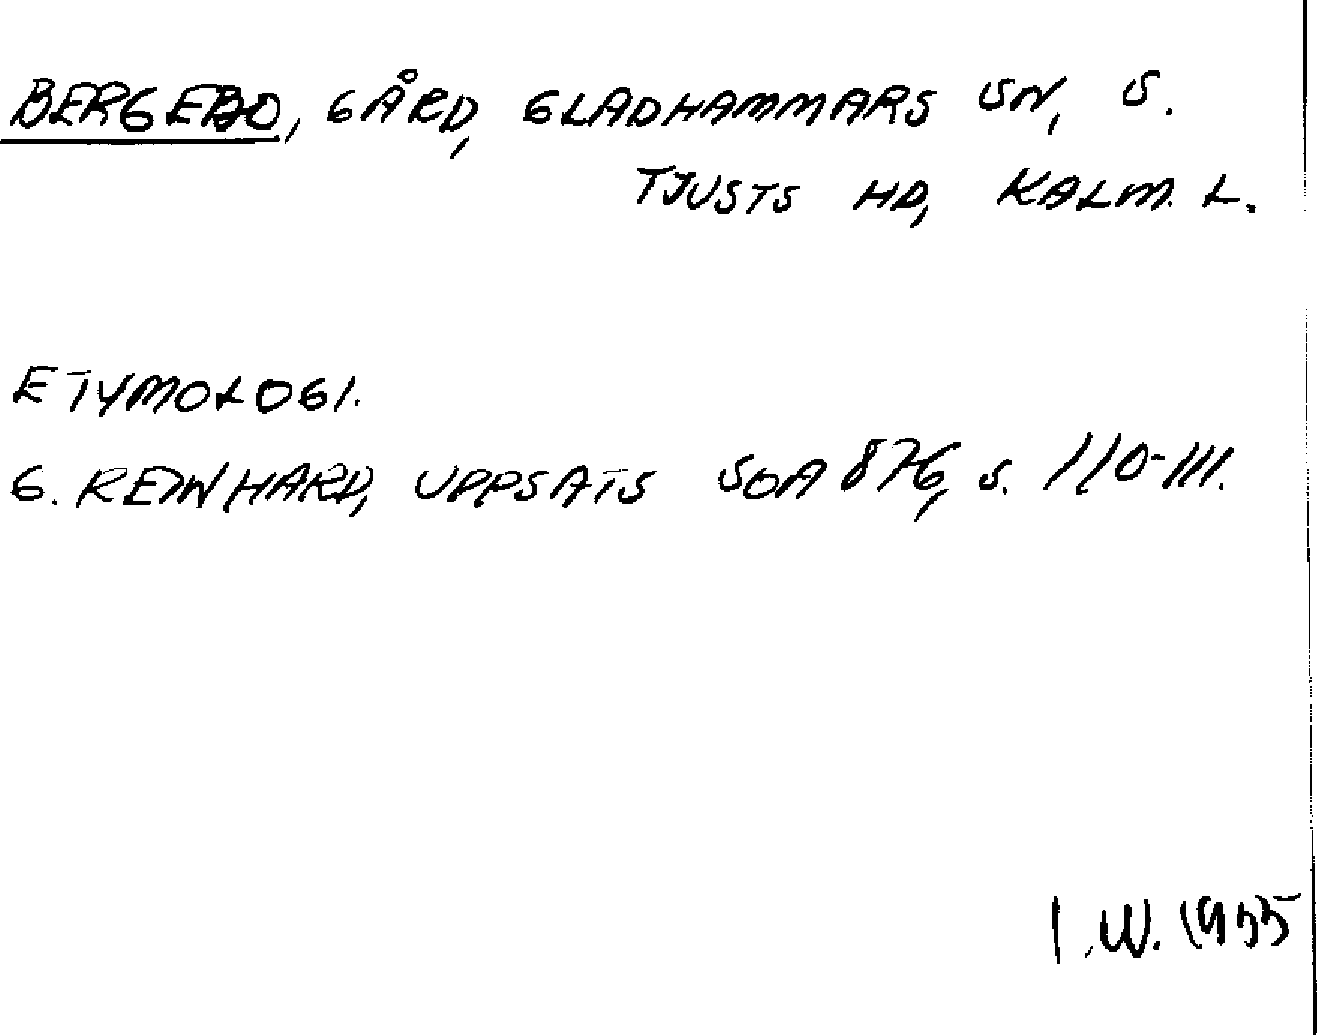 BERGEBO, GÅRD, GLADHAMMARS SN, S.
TJUSTS HD, KALM. L.
ETYMOLOGI.
G. REINHARD, UPPSATS SOA 876, S. 110-111.
I.W. 1955